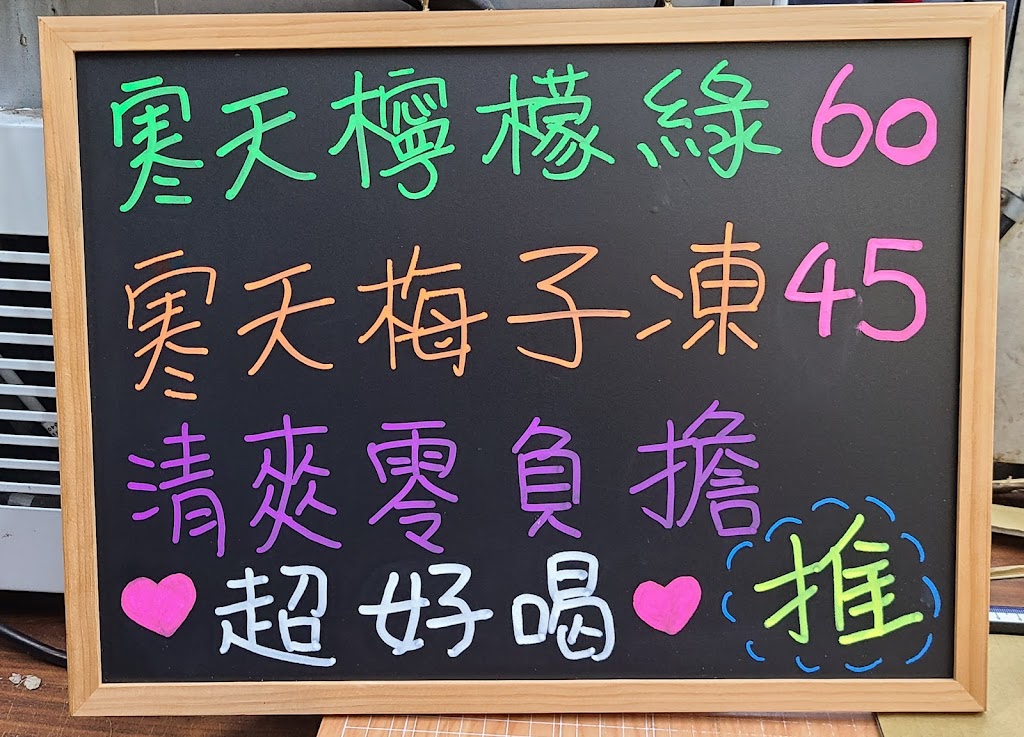 寒天檸檬綠 60
寒天梅子凍 45
清爽零負擔
超好喝
推